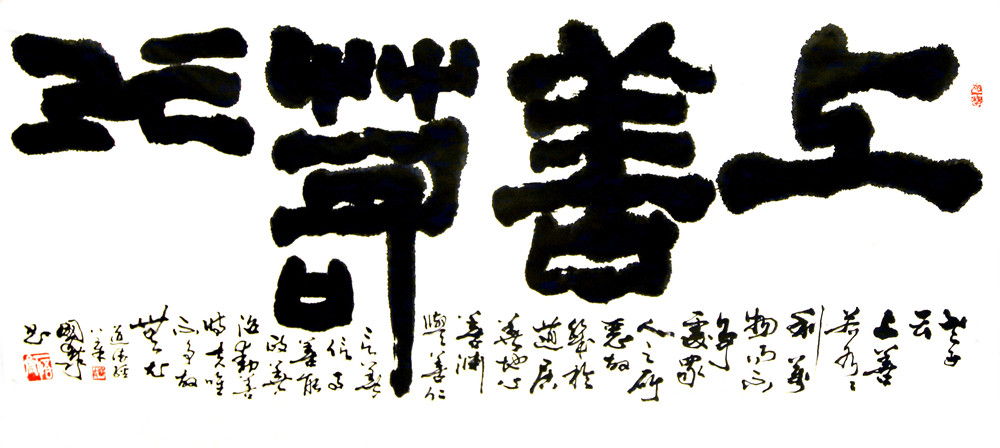 上善若水
老子
云
上善
若水〻
利萬
物而不
爭
處衆
人之所
惡故
幾於
道居
善地心
善淵
與善仁
言善
信事
善能
政善
治動善
時夫唯
不爭故
無尤
道德經
八章
國